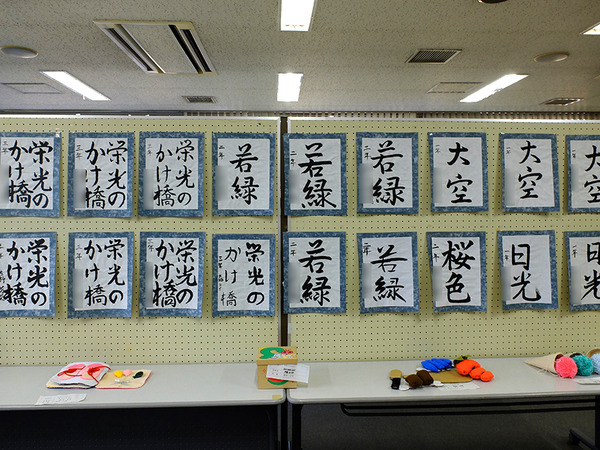 栄光の
かけ橋
三年
栄光の
かけ橋
三年
栄光の
かけ橋
三年
若緑
二年
若緑
二年
若緑
二年
大空
一年
大空
一年
大空
一年
栄光の
かけ橋
三年
栄光の
かけ橋
三年
栄光の
かけ橋
三年
栄光の
かけ橋
若緑
二年
若緑
二年
桜色
一年
日光
一年
日光
一年